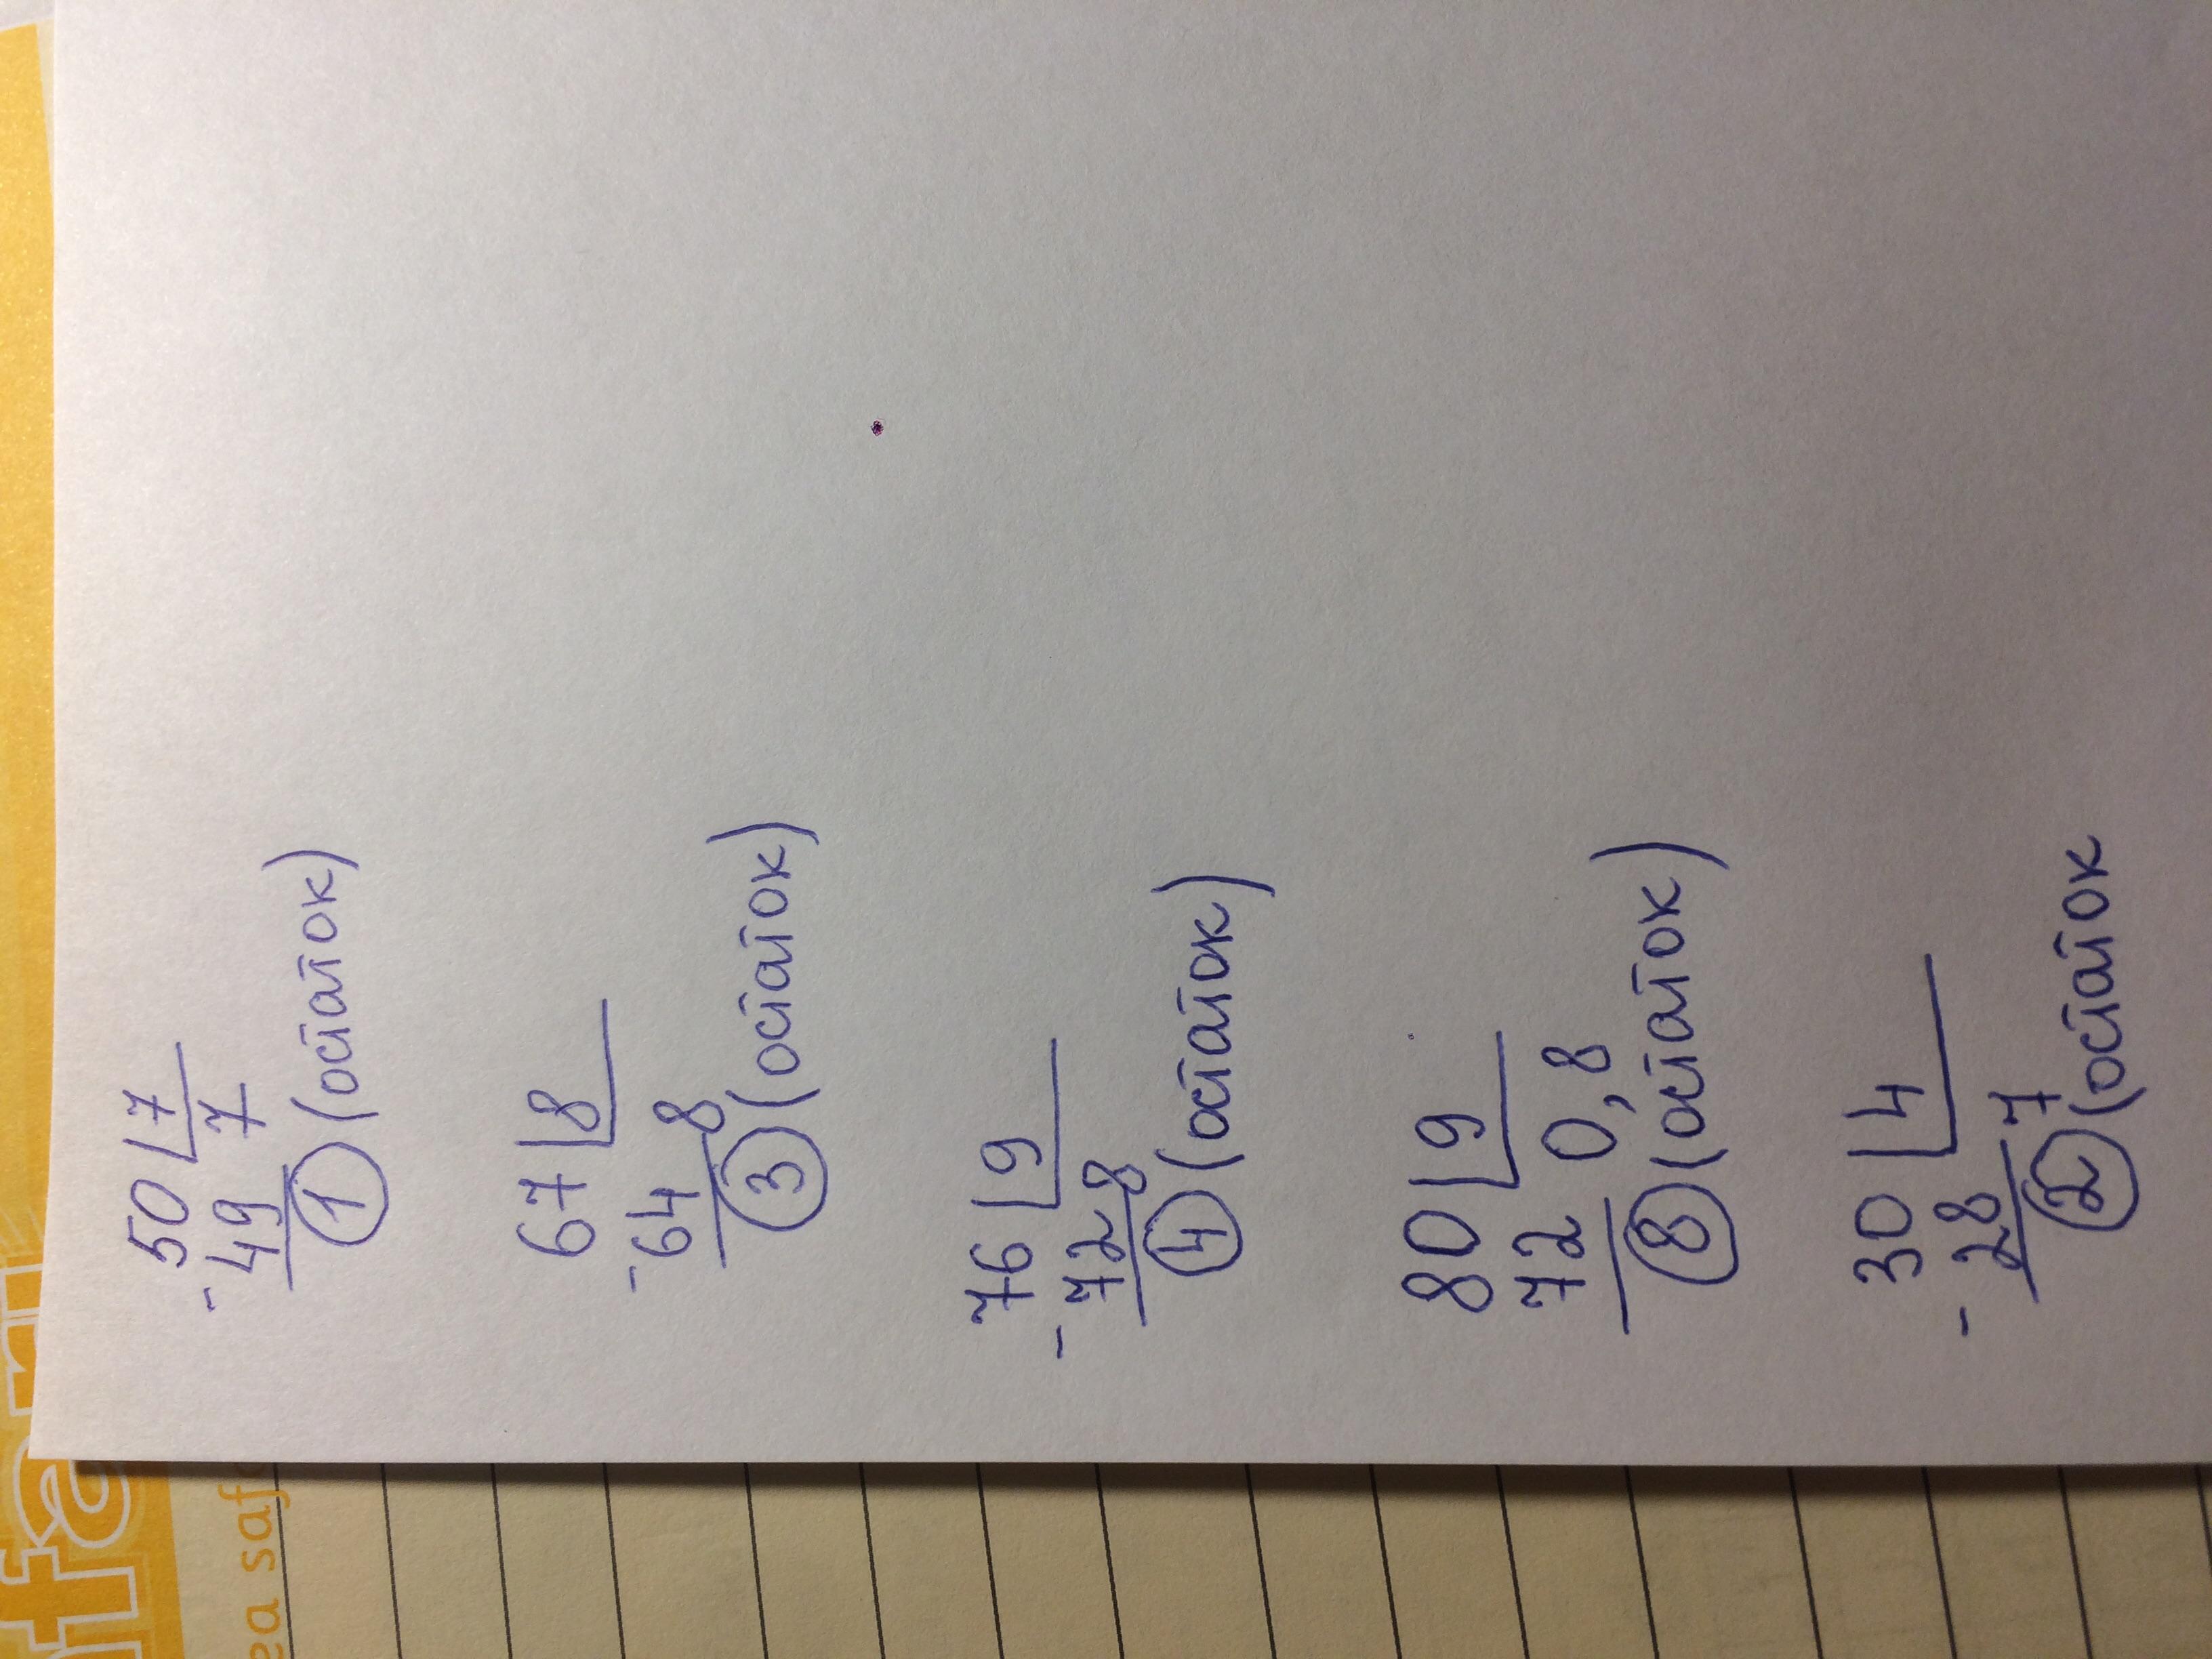 50 7
- 49 7
1 (остаток)
67 8
- 64 8
3 (остаток)
76 9
- 72 8
4 (остаток)
80 9
72 0,8
8 (остаток)
30 4
- 28 7
2 (остаток
ea saf